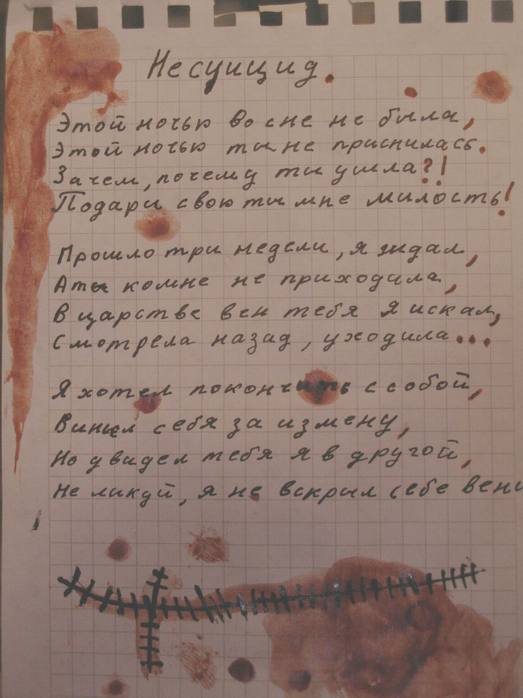 Несуицид.
Этой ночью во сне не была,
Этой ночью ты не приснилась.
Зачем, почему ты ушла?!
Подари свою ты мне милость!
Прошло три недели, я ждал,
А ты комне не приходила,
В царстве вен тебя я искал,
Смотрела назад, уходила...
Я хотел покончить с собой,
Винил себя за измену,
Но увидел тебя я в другой,
Не ликуй, я не вскрыл себе вены